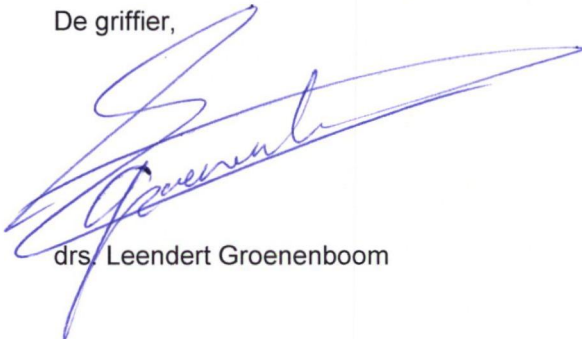 De griffier,
drs. Leendert Groenenboom